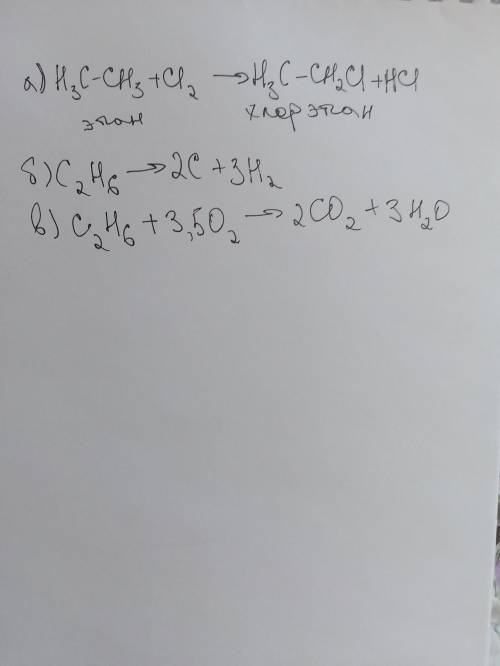 а) H₃C-CH₃ + Cl₂ → H₃C-CH₂Cl + HCl
этан хлорэтан
б) C₂H₆ → 2C + 3H₂
в) C₂H₆ + 3,5O₂ → 2CO₂ + 3H₂O